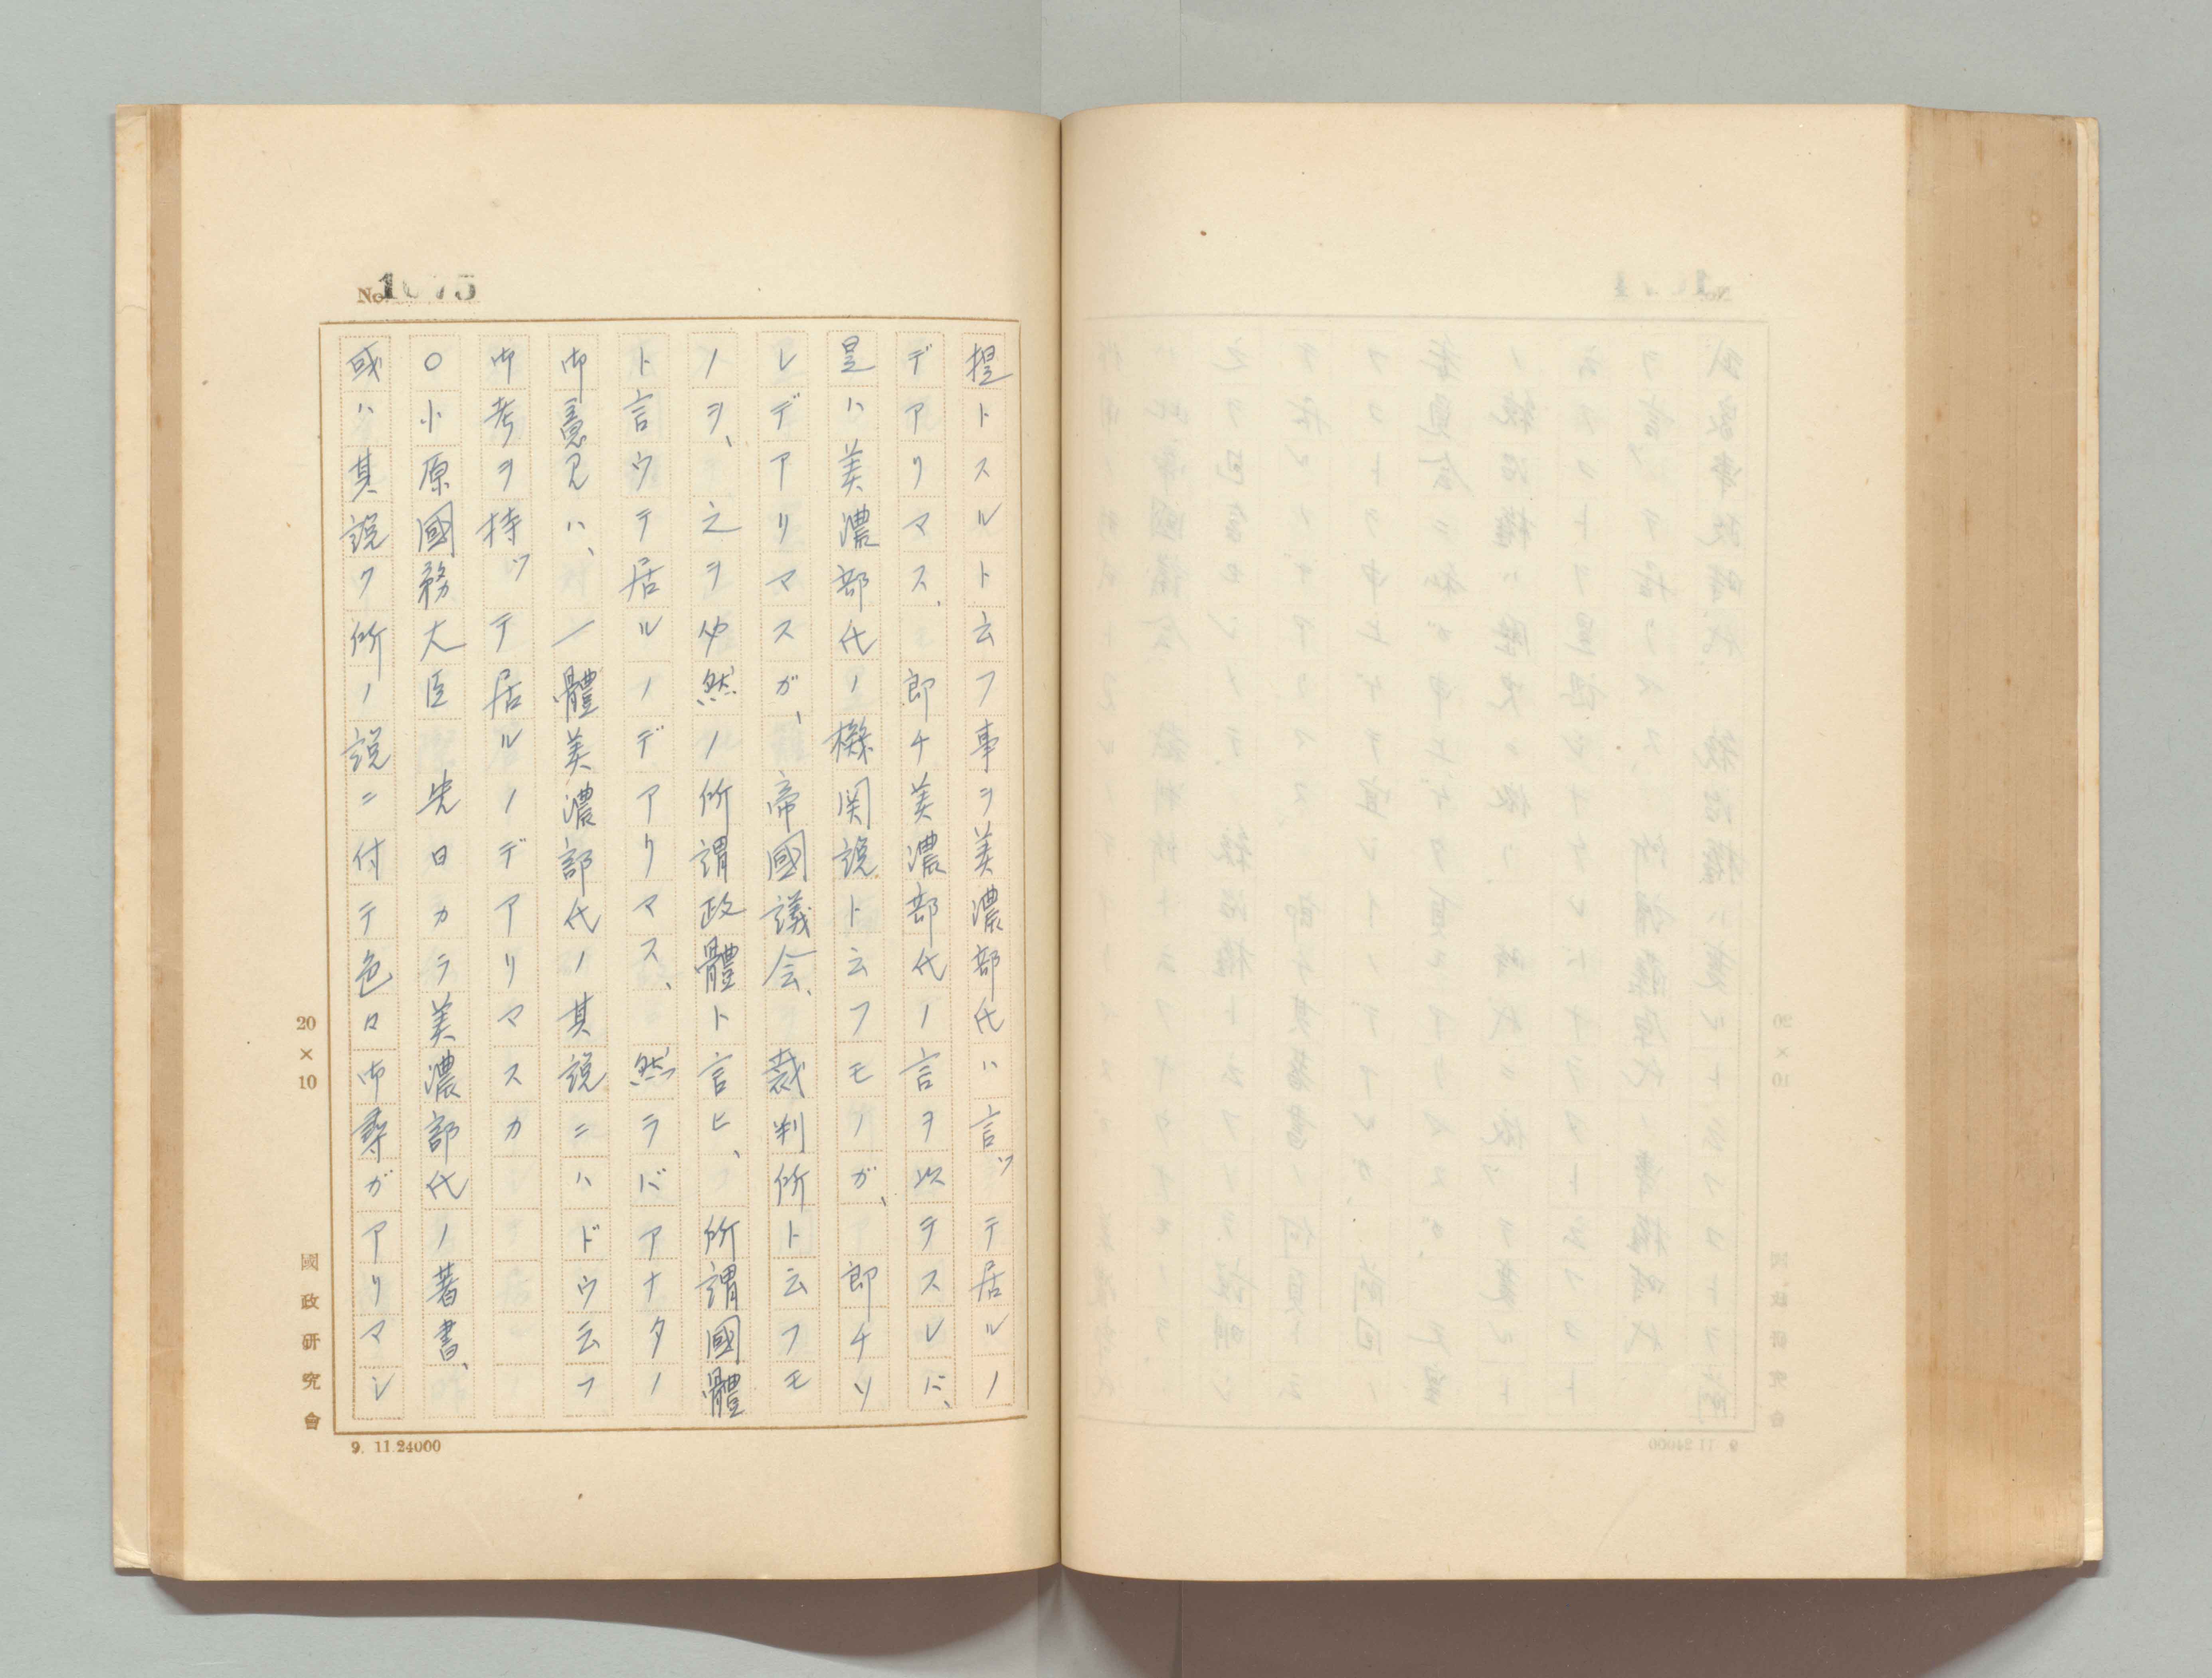 No. 1075
提トスルト云フ事ヲ美濃部氏ハ言ッテ居ルノ
デアリマス、即チ美濃部氏ノ言ヲ以テスレバ、
是ハ美濃部氏ノ機関説ト云フモノガ、即チソ
レデアリマスガ、帝國議会、裁判所ト云フモ
ノヲ、之ヲ必然ノ所謂政體ト言ヒ、所謂國體
ト言ウテ居ルノデアリマス、然ラバアナタノ
御意見ハ、一體美濃部氏ノ其説ニハドウ云フ
御考ヲ持ッテ居ルノデアリマスカ
〇小原國務大臣 先日カラ美濃部氏ノ著書、
或ハ其説ク所ノ説ニ付テ色々御尋ガアリマシ
20×10
國政研究會
9. 11.24000